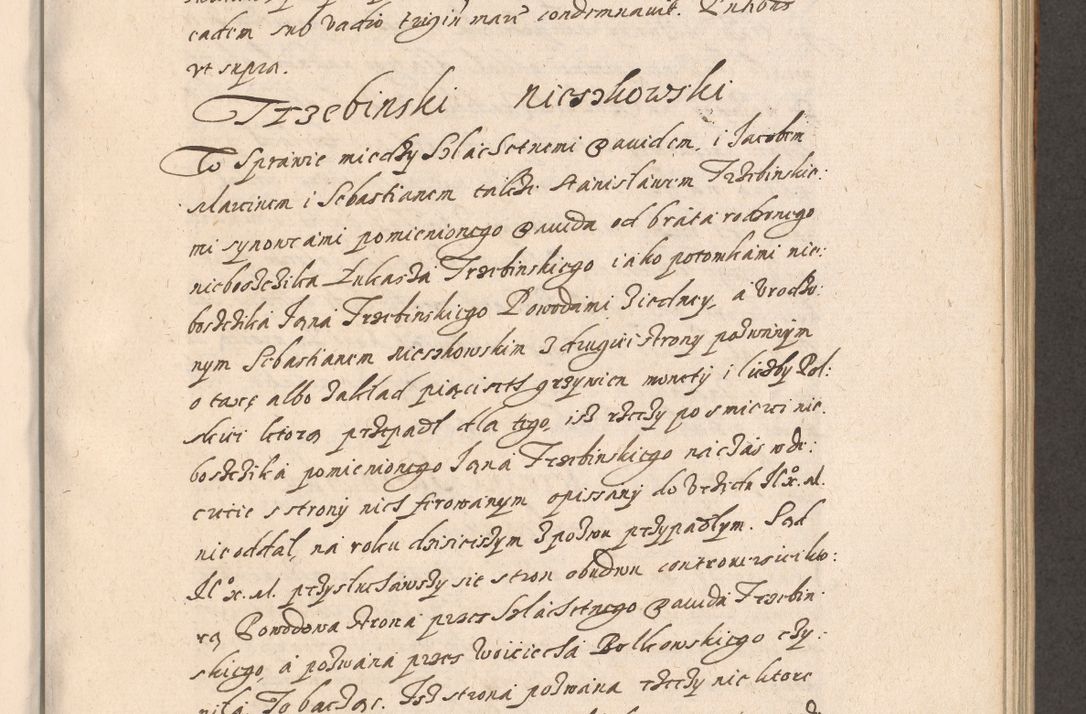 eadem sub vadio trigin marc condemnavit.
vt supra.
Trzebinski Nieszkowski
W Sprawie miedzy Szlachetnemi Dawidem, i Jacobem
Marcinem i Sebastianem także Stanisławem Trzebinskie:
mi synowcami pomienionego Dawida od brata rodzonego
nieboszczika Łukasza Trzebinskiego i ako potomkami nie:
boszczika Jana Trzebinskiego Powodami z iedney, a Vrodzo:
nym Sebastianem Nieszkowskim z drugiei strony pozwanym
o taxę albo zakład pięciseth grzywien monety i liczby Pol:
skiei ktorą przepadł dla tego, isz rzeczy po smierci nie
boszczika pomienionego Jana Trzebinskiego na czas w de:
crecie s strony nich ferowanym opissany do Vrzędu
nie oddał, na roku dzisieiszym z pozwu przypadłym. Sąd
przysłuchawszy sie stron obudwu controwersiei kto:
rą Powodowa strona przez Szlachetnego Dawida Trzebin
skiego, a pozwana przez Woiciecha Bolkowskiego czy:
niła. Zobacząc. Isz strona pozwana rzeczy nie ktore